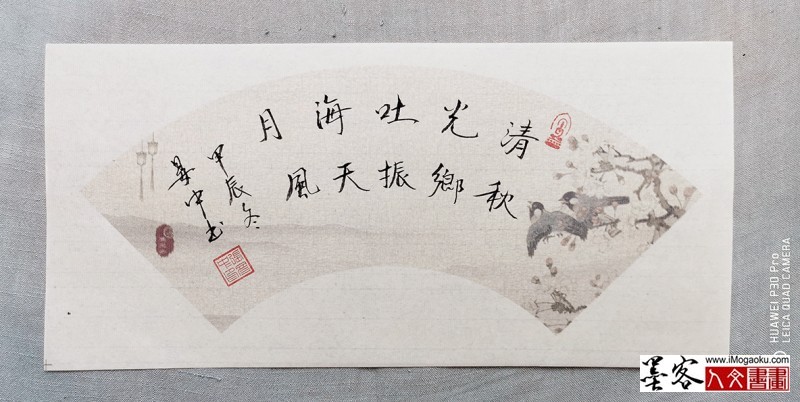 清光吐海月
秋鄉振天風
甲辰冬
中书
HUAWEI P30 Pro
LEICA QUAD CAMERA
墨客
www.iMogaoku.com
人文書畫